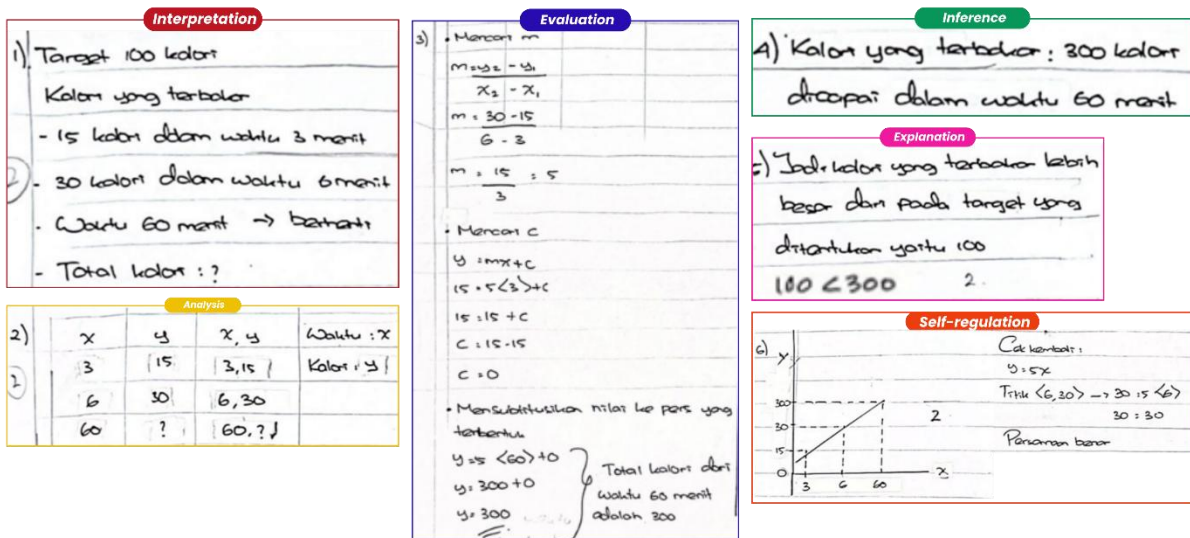 Interpretation
1) Target 100 kalori
Kalori yang terbakar
- 15 kalori dalam waktu 3 menit
2
- 30 kalori dalam waktu 6 menit
- Waktu 60 menit → berhenti
- Total kalori : ?
Analysis
2) x y x, y Waktu : x
3 15 3,15 Kalori : y
2
6 30 6,30
60 ? 60,?
Evaluation
3) • Mencari m
m = y₂ - y₁
x₂ - x₁
m = 30 - 15
6 - 3
m = 15 = 5
3
• Mencari c
y = mx + c
15 = 5<3> + c
15 = 15 + c
c = 15 - 15
c = 0
• Mensubtitusikan nilai ke pers yang
terbentuk
y = 5 <60> + 0
y = 300 + 0
y = 300
Total kalori dari
waktu 60 menit
adalah 300
Inference
4) Kalori yang terbakar : 300 kalori
dicapai dalam waktu 60 menit
Explanation
5) Jadi kalori yang terbakar lebih
besar dari pada target yang
ditentukan yaitu 100
100 < 300 2
Self-regulation
6) y
300
30
15
0
3 6 60 x
2
Cek kembali :
y = 5x
Titik <6,30> → 30 = 5 <6>
30 = 30
Persamaan benar